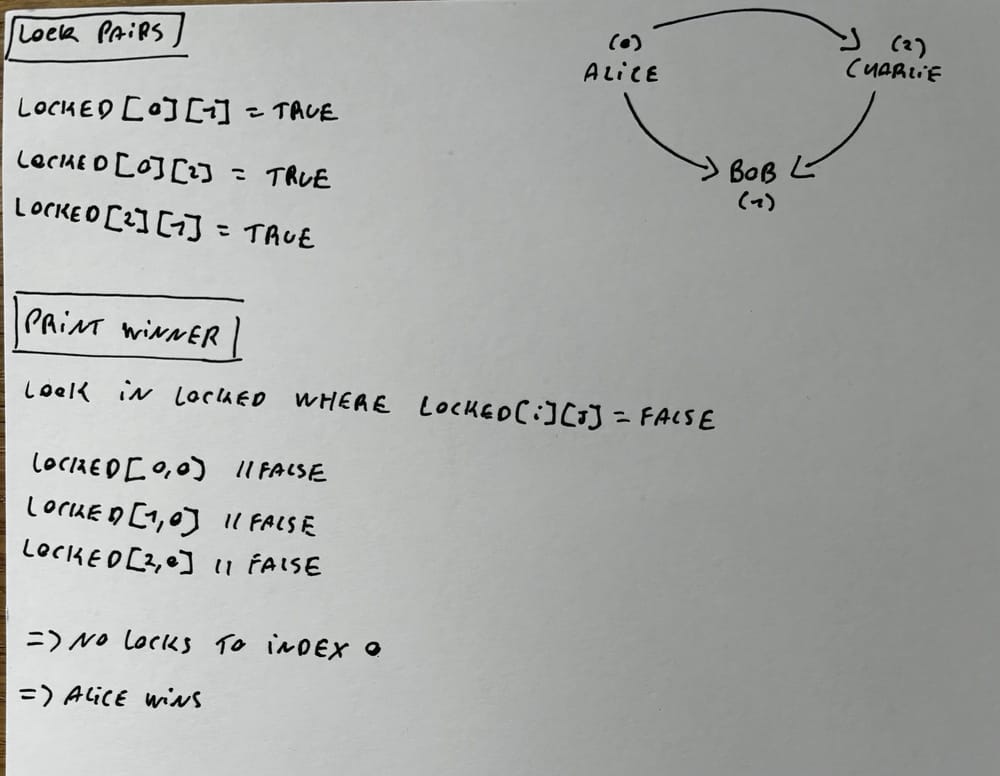 LOCK PAIRS
LOCKED[0][1] = TRUE
LOCKED[0][2] = TRUE
LOCKED[2][1] = TRUE
(0)
ALICE
(2)
CHARLIE
BOB
(1)
PRINT WINNER
LOOK IN LOCKED WHERE LOCKED[i][J] = FALSE
LOCKED[0,0) // FALSE
LOCKED[1,0] // FALSE
LOCKED[2,0] // FALSE
=> NO LOCKS TO INDEX 0
=> ALICE WINS